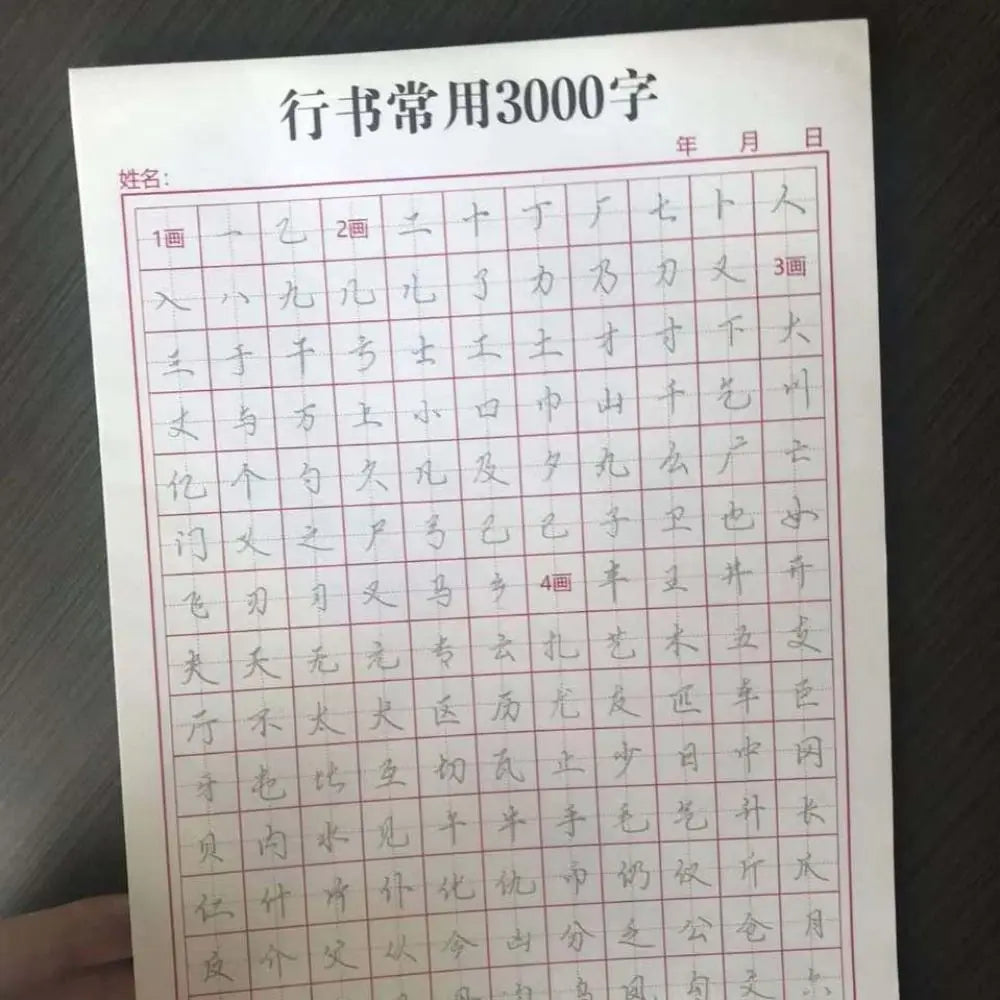 行书常用3000字
年 月 日
姓名：
1画 一 乙 2画 二 十 丁 厂 七 卜 人
入 八 九 几 儿 了 力 乃 刀 又 3画
三 于 干 亏 士 工 土 才 寸 下 大
丈 与 万 上 小 口 巾 山 千 乞 川
亿 个 勺 久 凡 及 夕 丸 么 广 亡
门 义 之 尸 弓 己 已 子 卫 也 女
飞 刃 习 叉 马 乡 4画 丰 王 井 开
夫 天 无 元 专 云 扎 艺 木 五 支
厅 不 太 犬 区 历 尤 友 匹 车 巨
牙 屯 比 互 切 瓦 止 少 日 中 冈
贝 内 水 见 午 牛 手 毛 气 升 长
仁 什 片 仆 化 仇 币 仍 仅 斤 爪
反 介 父 从 今 凶 分 乏 公 仓 月
乌 凤 勾 文 六